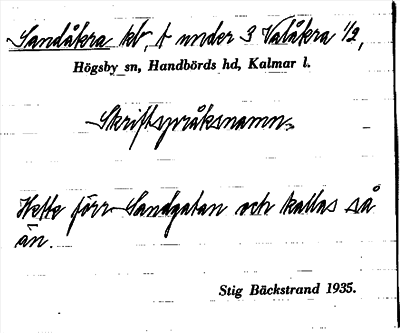 Sandåkra kb, t under 3 Valåkra 1/2,
Högsby sn, Handbörds hd, Kalmar l.
Skriftspråksnamn.
Hette förr Sandgatan och kallas så
än.
Stig Bäckstrand 1935.